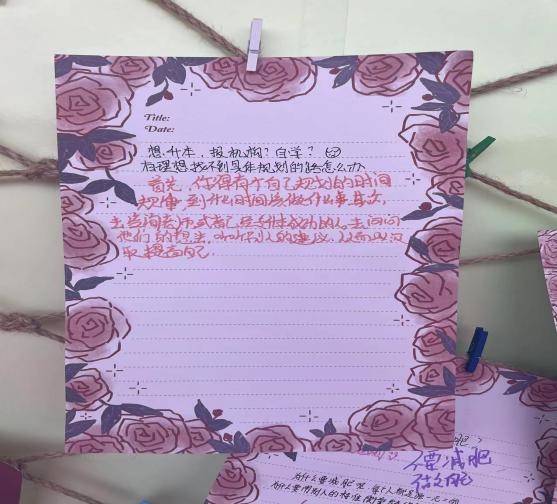 Title:
Date:
想升本，报机构？自学？
有理想找不到具体规划的路怎么办
首先，你得有个自己规划的时间
规律 到什么时间该做什么事其次，
去咨询老师或者已经升本成功的人。去问问
他们的想法，听听别人的建议，从而以汲
取提高自己.
不要减肥
做自己
为什么要减肥呢 每个人都是独一无二的